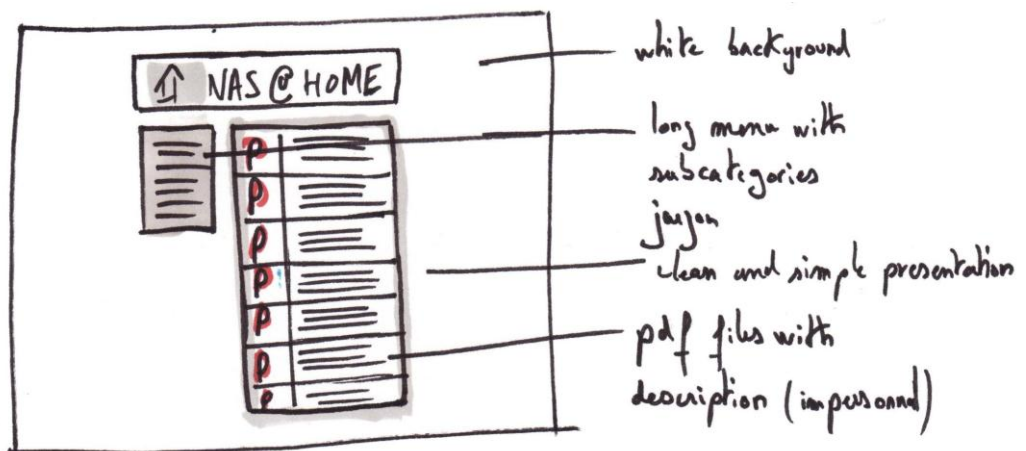 NAS@HOME
white background
long menu with
subcategories
jargon
clean and simple presentation
pdf files with
description (impersonnal)
P
P
P
P
P
P
P